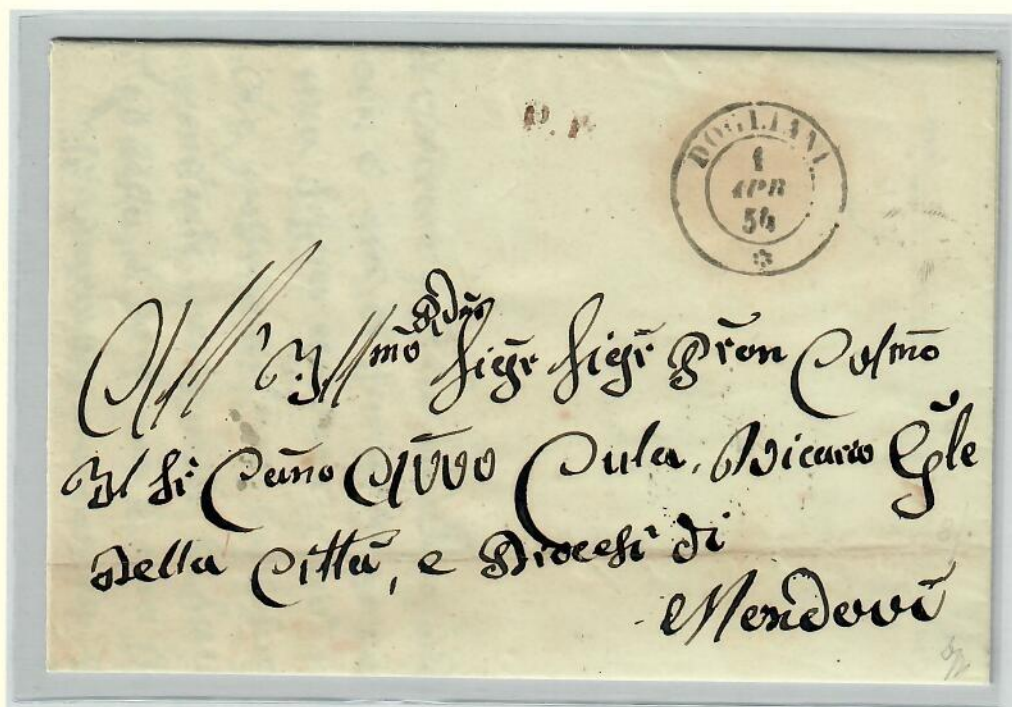 P. P.
DOGLIANI
1
APR
54
All' Illmo Rdmo Sigr Sigr Pron Colmo
Il Sr Cano Avvo Cula, Vicario Gle
Della Città, e Diocesi di
Mondovì